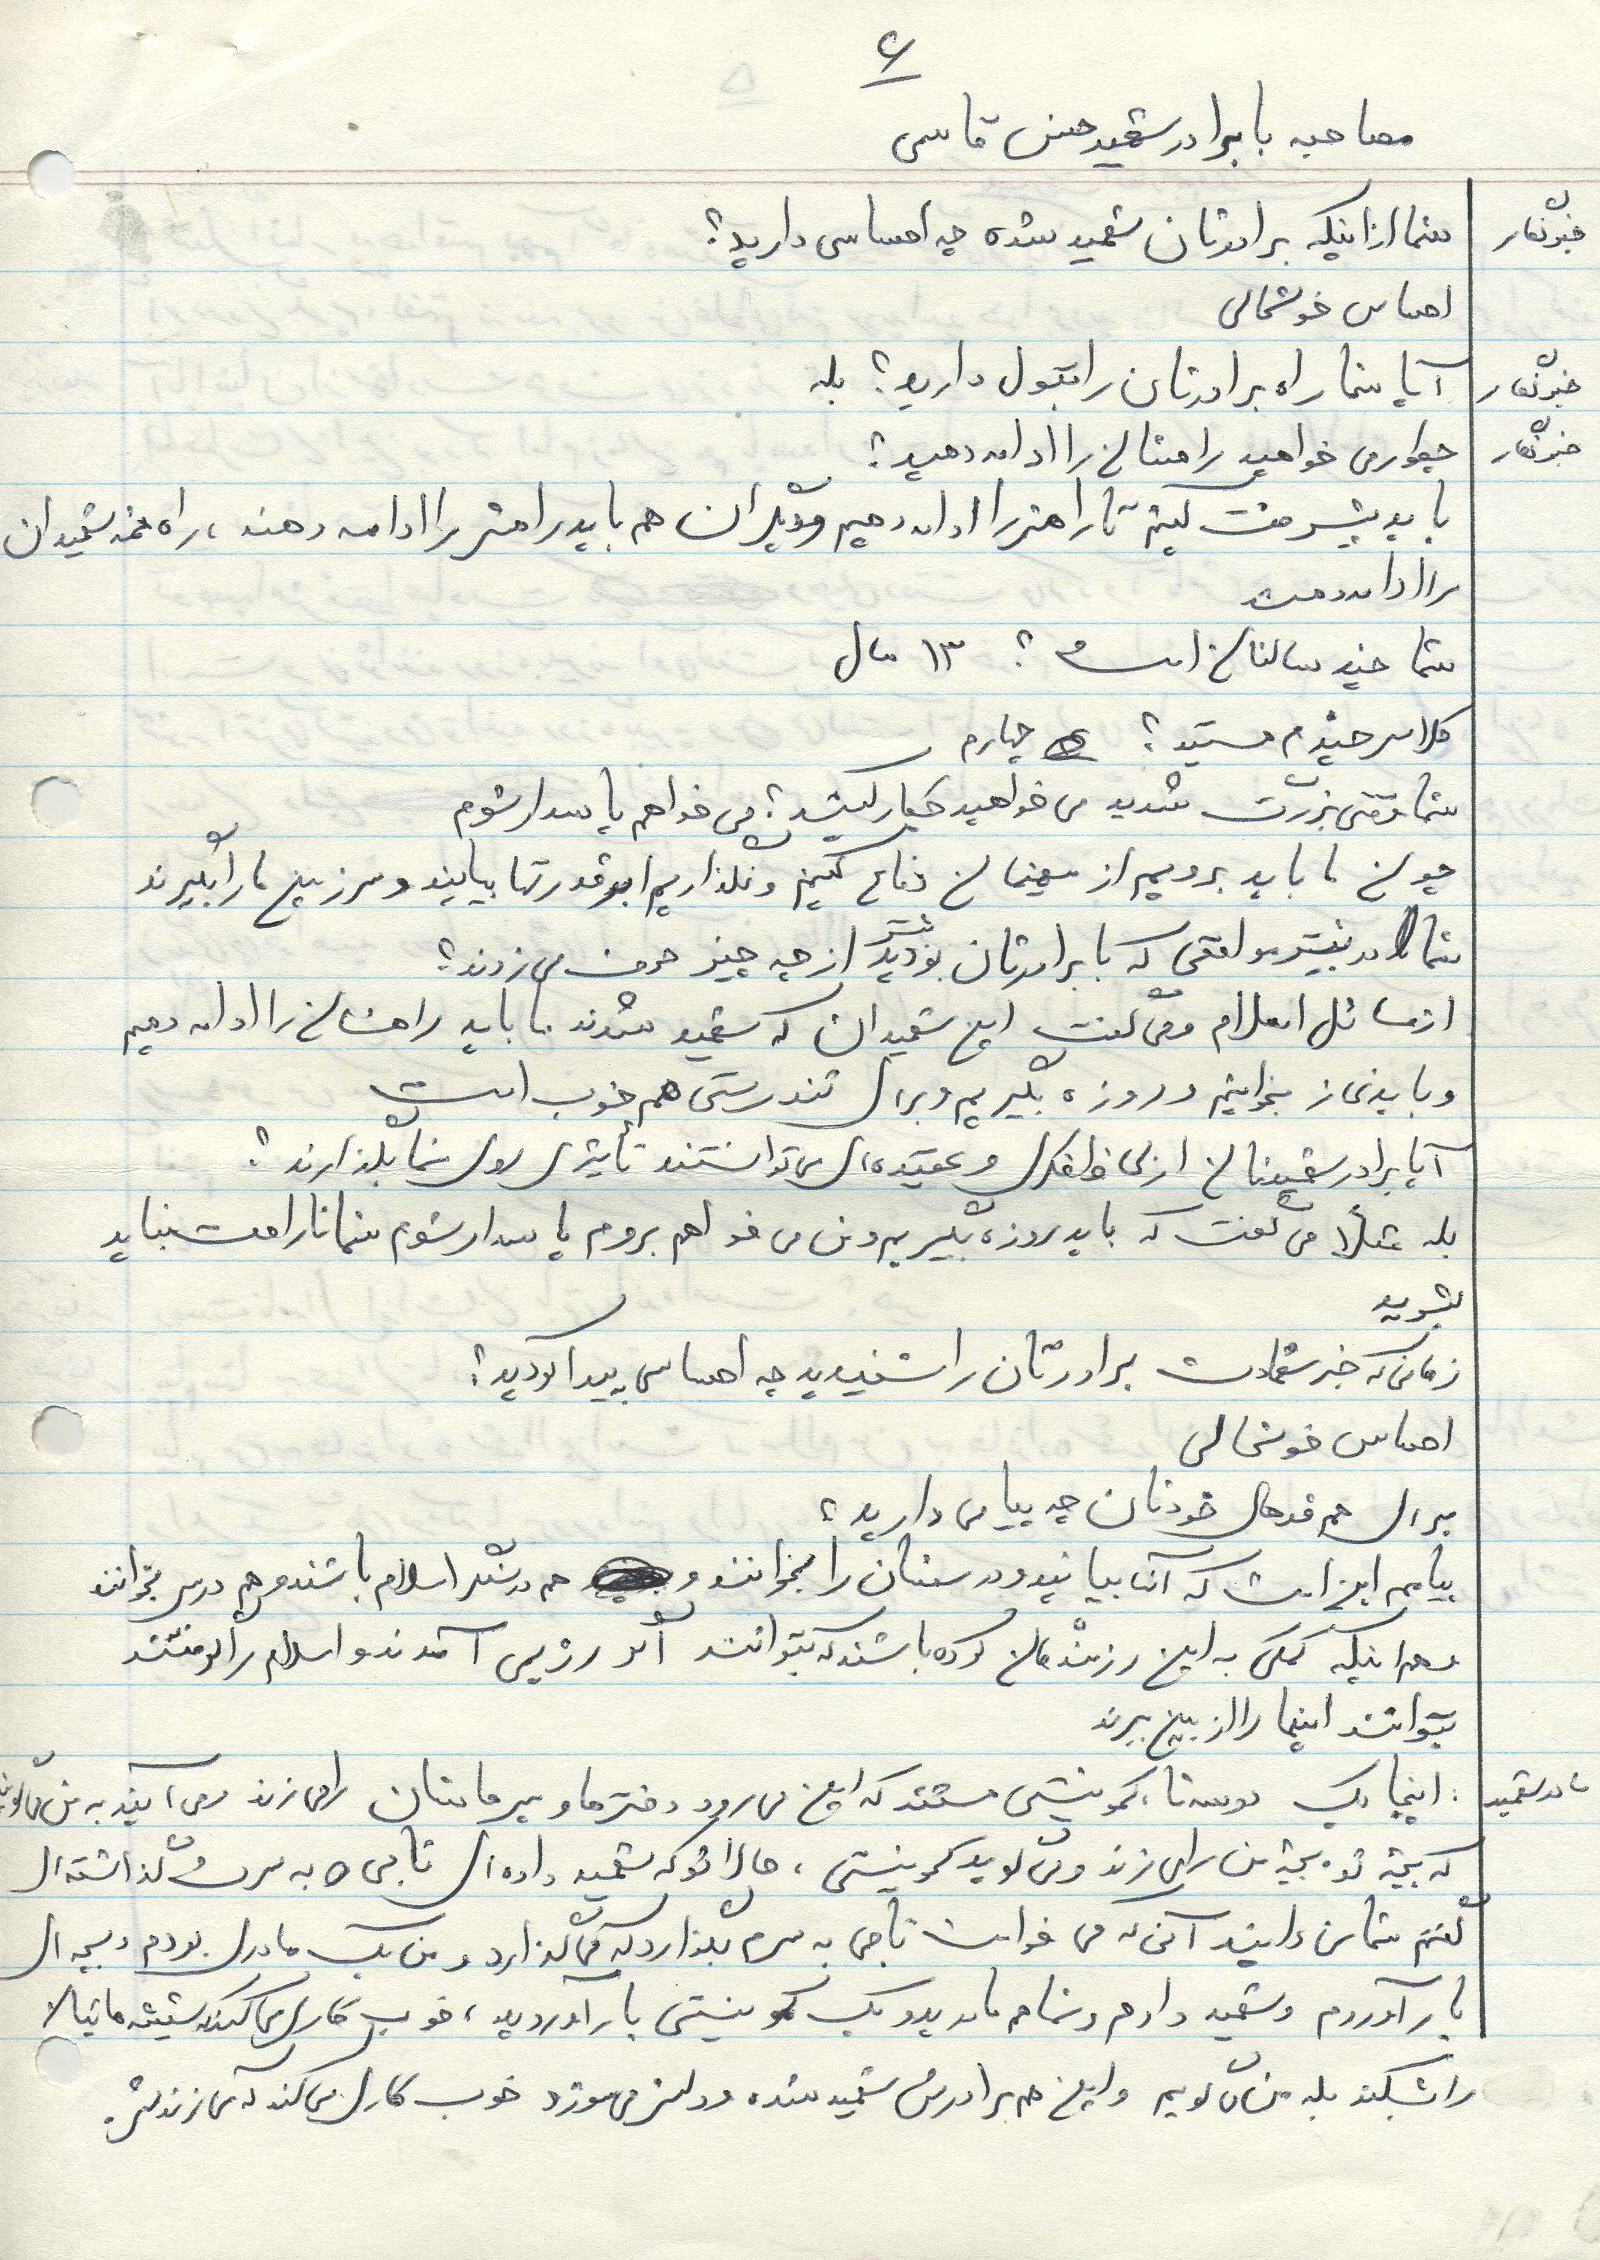 ۶
مصاحبه با برادر شهید حسن قاسمی
خبرنگار شما از اینکه برادرتان شهید شده چه احساسی دارید؟
احساس خوشحالی
خبرنگار آیا شما راه برادرتان را قبول دارید؟ بله
خبرنگار چطور می خواهید راهشان را ادامه دهید؟
باید پیشرفت کنیم تا راهش را ادامه دهیم و دیگران هم باید راهش را ادامه دهند، راه همه شهیدان
را ادامه دهند
شما چند سالتان است؟ ۱۳ سال
کلاس چندم هستید؟ چهارم
شما وقتی بزرگ شدید می خواهید چکار کنید؟ می خواهم پاسدار شوم
چون ما باید برویم از میهنمان دفاع کنیم و نگذاریم ابرقدرتها بیایند و سرزمین ما را بگیرند
شما در بیشتر مواقعی که با برادرتان بودید بیشتر از چه چیز حرف می زدند؟
از مسائل اسلام و می گفت این شهیدان که شهید شدند ما باید راهشان را ادامه دهیم
و باید نماز بخوانیم و روزه بگیریم و برای تندرستی هم خوب است
آیا برادر شهیدتان از لحاظ فکری و عقیده ای می توانستند تأثیری روی شما بگذارند؟
بله مثلا می گفت که باید روزه بگیریم و من می خواهم بروم پاسدار شوم شما ناراحت نباید
بشوید
زمانی که خبر شهادت برادرتان را شنیدید چه احساسی پیدا کردید؟
احساس خوشحالی
برای هم قدهای خودتان چه پیامی دارید؟
پیامم این است که آنها بیایند و درسشان را بخوانند و هم در سنگر اسلام باشند و هم درس بخوانند
و هم اینکه کمکی به این رزمندگان کرده باشند که بتوانند اگر رژیمی آمدند و اسلام را گرفتند
بتوانند اینها را از بین ببرند
مادر شهید: اینجا یک دو سه تا، کمونیستی هستند که این می رود دخترها و پسرهایشان را می زند و می آیند به من می گویند
که بچه تو، بچه من را می زند و می گوید کمونیستی، حالا تو که شهید داده ای تاجی به سرت گذاشته ای
گفتم شما می دانید آن که می خواست تاجی به سرم بگذارد که می گذارد و من یک مادری بودم و بچه ای
بار آوردم و شهید دادم و شما هم مادرید و یک کمونیستی بار آوردید، خوب کاری می کند که شیشه هایتان
را بشکند بله من می گویم و این هم برادرش شهید شده و دلش می سوزد خوب کاری می کند که می زندش.